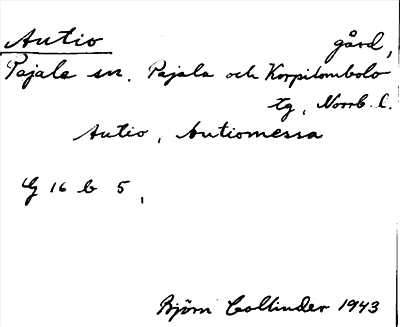 Autio gård,
Pajala sn. Pajala och Korpilombolo
tg, Norrb. l.
Autio, Autiomessa
G 16 b 5,
Björn Collinder 1943